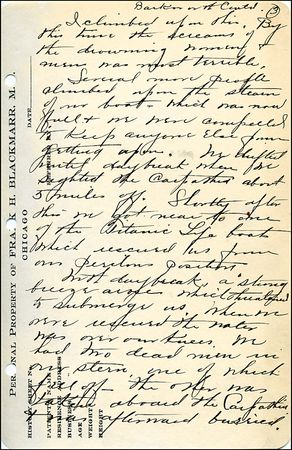 Barkworth Contd. 3
I climbed upon this. By
this time the screams of
the drowning women &
men was most terrible.
Several more people
climbed upon the
no boat which was now
full & we were compelled
to keep anyone else from
getting upon. We drifted
until daybreak when we
sighted the Carpathia about
5 miles off. Shortly after
this we got near to one
of the Titanic Life boats
which rescued us from
our perilous position.
With daybreak, a strong
breeze arose which threatened
to submerge us, when we
were rescued the water
was over our knees. We
had two dead men on
our stern, one of which
fell off - the other was
taken aboard the Carpathia
& was afterward buried
PERSONAL PROPERTY OF FRANK H. BLACKMARR, M.
CHICAGO
DATE
REFERRED BY
HISTORY SHEET
PATIENT'S NAME
RESIDENCE ADDRESS
BUSINESS
AGE
WEIGHT
HEIGHT